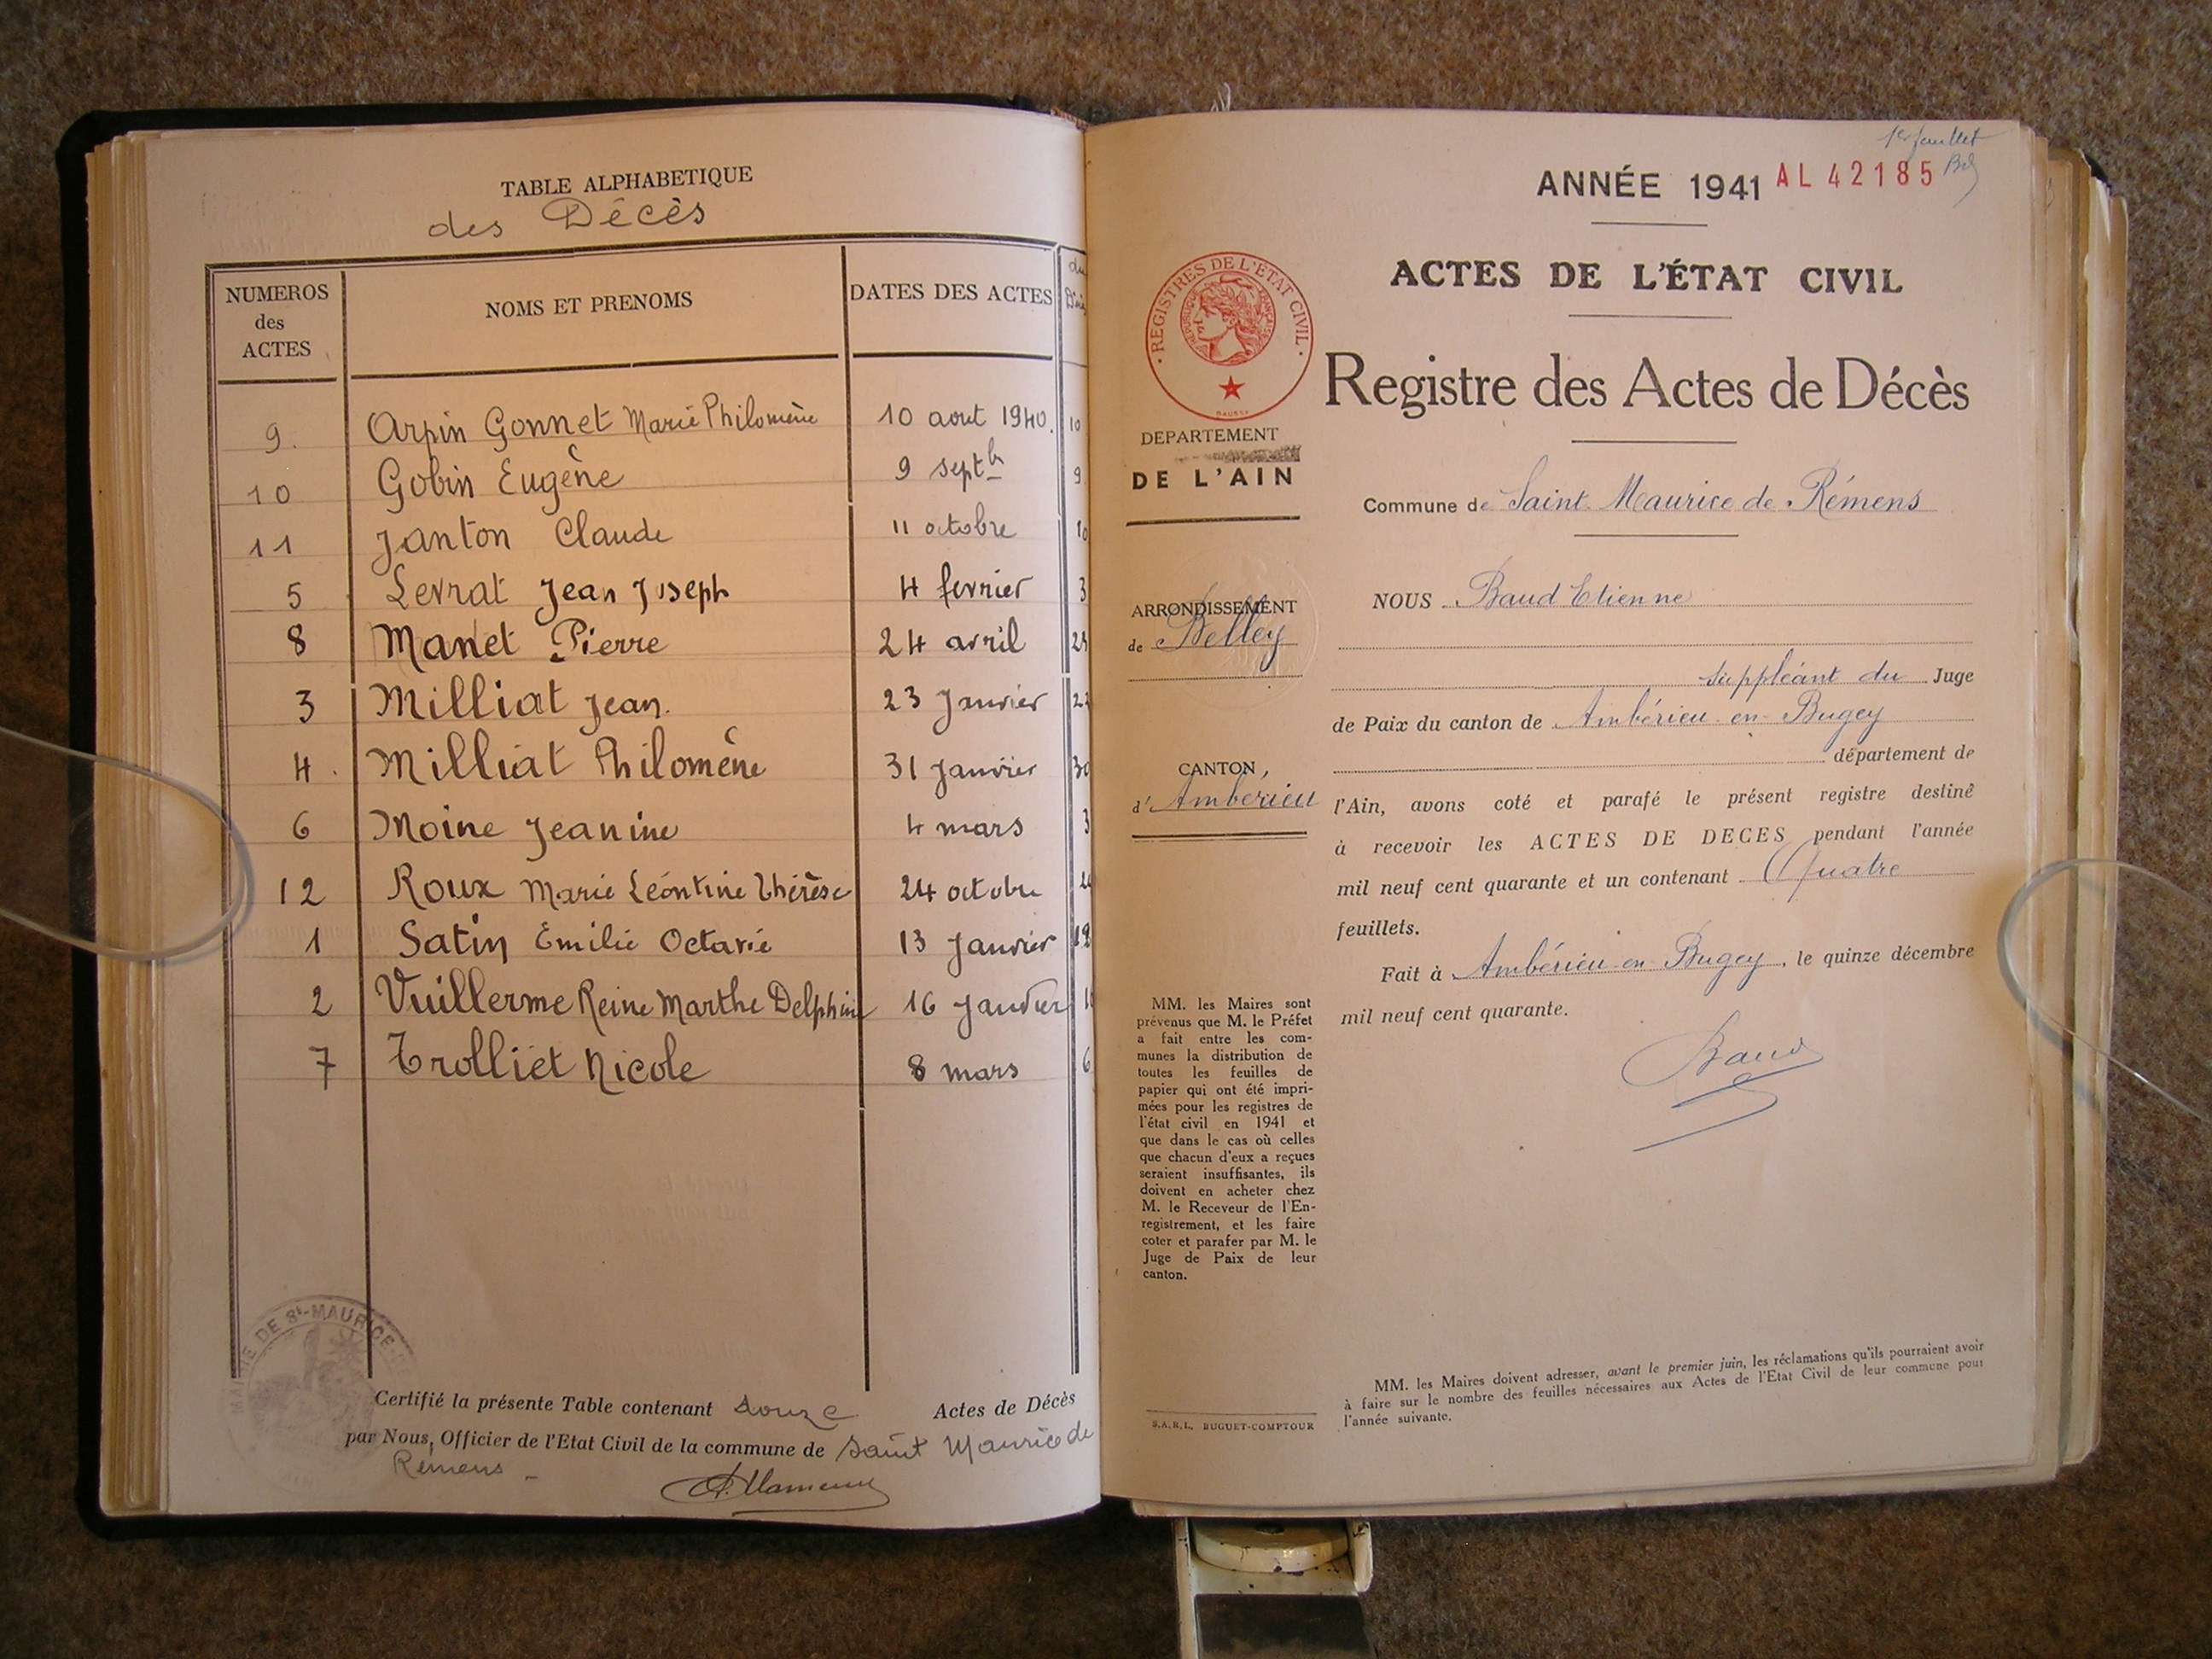 TABLE ALPHABETIQUE
des Décès
NUMEROS des ACTES | NOMS ET PRENOMS | DATES DES ACTES | du
9. Arpin Gonnet Marie Philomène 10 aout 1940. 10
10 Gobin Eugène 9 septbr 9
11 Janton Claude 11 octobre 10
5 Levrat Jean Joseph 4 fevrier 3
8 Manet Pierre 24 avril
3 Milliat Jean. 23 Janvier
4 Milliat Philomène 31 Janvier 30
6 Moine Jeanine 4 mars 3
12 Roux Marie Léontine Thérèse 24 octobre
1 Satin Emilie Octavie 13 Janvier 12
2 Vuillerme Reine Marthe Delphine 16 Janvier
7 Trolliet Nicole 8 mars 6
MAIRIE DE St-MAURICE
Certifié la présente Table contenant douze Actes de Décès
par Nous, Officier de l'Etat Civil de la commune de Saint Maurice de
Remens -
1er feuillet
ANNÉE 1941 AL 42185
ACTES DE L'ÉTAT CIVIL
REGISTRES DE L'ETAT CIVIL
Registre des Actes de Décès
DEPARTEMENT
DE L'AIN
Commune de Saint Maurice de Rémens
ARRONDISSEMENT
de Belley
NOUS Baud Etienne
suppléant du Juge
de Paix du canton de Ambérieu-en-Bugey
département de
CANTON
d'Ambérieu
l'Ain, avons coté et parafé le présent registre destiné
à recevoir les ACTES DE DECES pendant l'année
mil neuf cent quarante et un contenant Quatre
feuillets.
Fait à Ambérieu-en-Bugey, le quinze décembre
mil neuf cent quarante.
Baud
MM. les Maires sont
prévenus que M. le Préfet
a fait entre les com-
munes la distribution de
toutes les feuilles de
papier qui ont été impri-
mées pour les registres de
l'état civil en 1941 et
que dans le cas où celles
que chacun d'eux a reçues
seraient insuffisantes, ils
doivent en acheter chez
M. le Receveur de l'En-
registrement, et les faire
coter et parafer par M. le
Juge de Paix de leur
canton.
MM. les Maires doivent adresser, avant le premier juin, les réclamations qu'ils pourraient avoir
à faire sur le nombre des feuilles nécessaires aux Actes de l'Etat Civil de leur commune pour
l'année suivante.
S.A.R.L. BUGUET-COMPTOUR